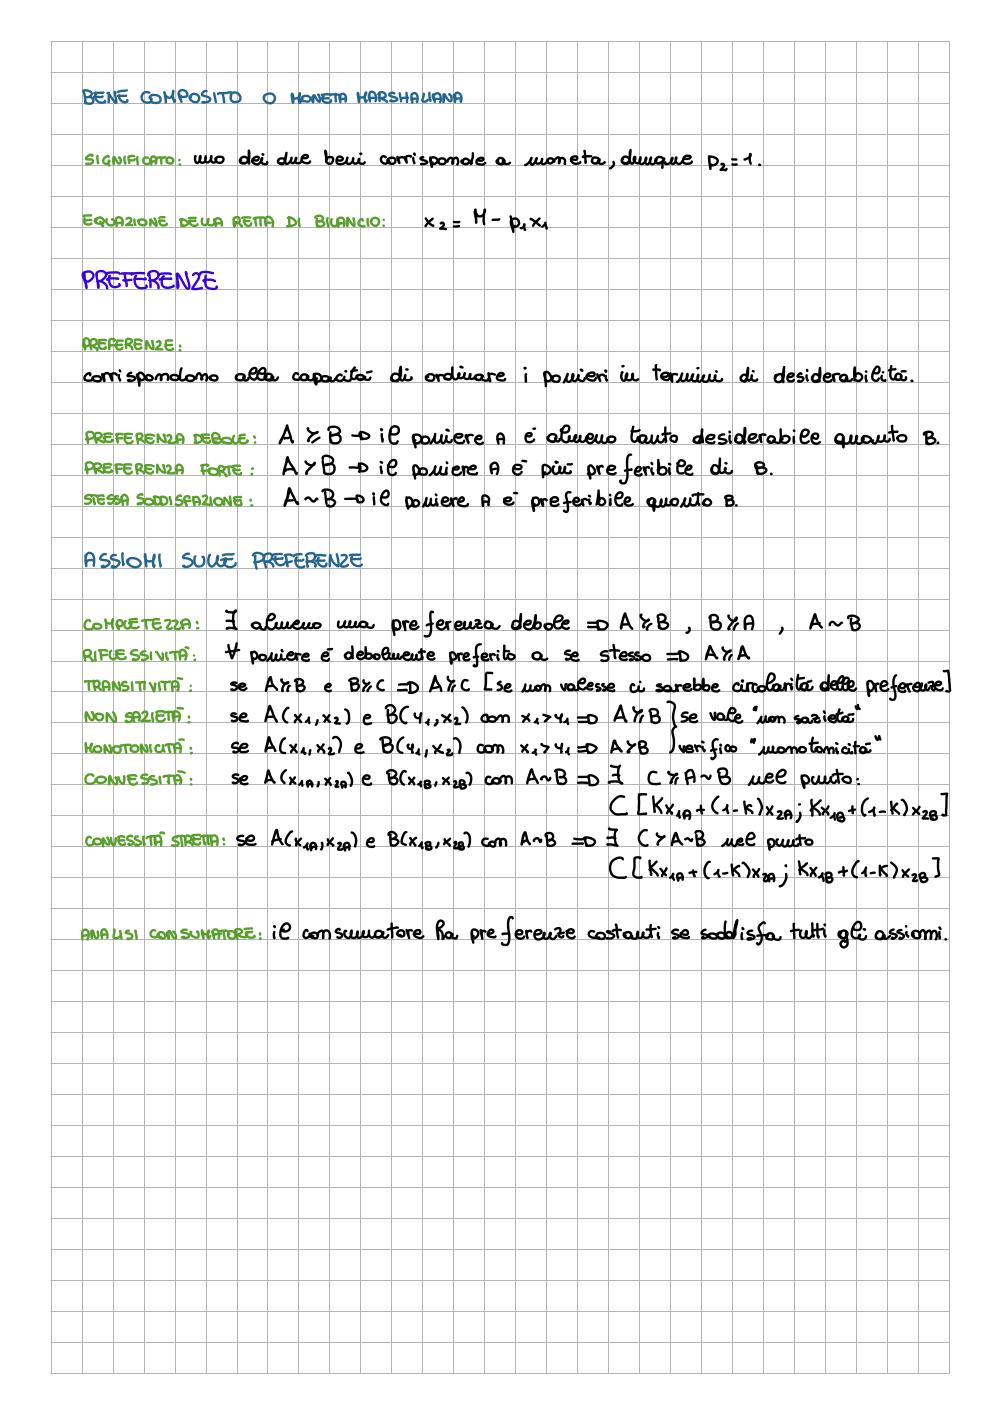 BENE COMPOSITO O MONETA MARSHALLIANA
SIGNIFICATO: uno dei due beni corrisponde a moneta, dunque p₂ = 1.
EQUAZIONE DELLA RETTA DI BILANCIO: x₂ = M - p₁x₁
PREFERENZE
PREFERENZE:
corrispondono alla capacità di ordinare i panieri in termini di desiderabilità.
PREFERENZA DEBOLE: A ≽ B → il paniere A è almeno tanto desiderabile quanto B.
PREFERENZA FORTE: A ≻ B → il paniere A è più preferibile di B.
STESSA SODDISFAZIONE: A ~ B → il paniere A è preferibile quanto B.
ASSIOMI SULLE PREFERENZE
COMPLETEZZA: ∃ almeno una preferenza debole ⇒ A ≽ B , B ≽ A , A ~ B
RIFLESSIVITÀ: ∀ paniere è debolmente preferito a se stesso ⇒ A ≽ A
TRANSITIVITÀ: se A ≽ B e B ≽ C ⇒ A ≽ C [se non valesse ci sarebbe circolarità delle preferenze]
NON SAZIETÀ: se A(x₁,x₂) e B(y₁,x₂) con x₁>y₁ ⇒ A ≽ B } se vale "non sazietà"
MONOTONICITÀ: se A(x₁,x₂) e B(y₁,x₂) con x₁>y₁ ⇒ A ≻ B } verifico "monotonicità"
CONVESSITÀ: se A(x₁A,x₂A) e B(x₁B,x₂B) con A~B ⇒ ∃ C ≽ A~B nel punto:
C [Kx₁A+(1-K)x₂A; Kx₁B+(1-K)x₂B]
CONVESSITÀ STRETTA: se A(x₁A,x₂A) e B(x₁B,x₂B) con A~B ⇒ ∃ C ≻ A~B nel punto
C [Kx₁A+(1-K)x₂A; Kx₁B+(1-K)x₂B]
ANALISI CONSUMATORE: il consumatore ha preferenze costanti se soddisfa tutti gli assiomi.